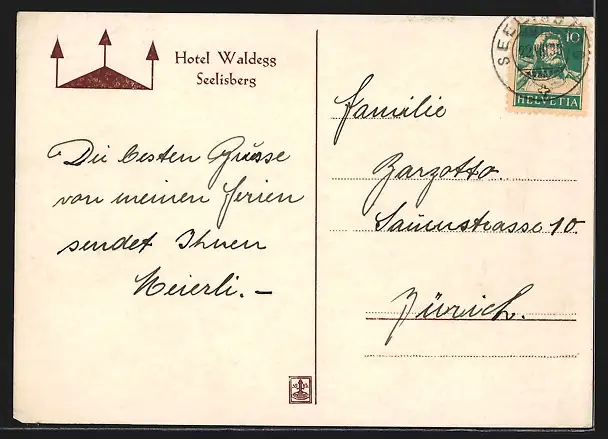 Hotel Waldegg
Seelisberg
Die besten Grüsse
von meinen Ferien
sendet Ihnen
Meierli. –
10
HELVETIA
Familie
Zarzotto.
strasse 10.
Zürich.